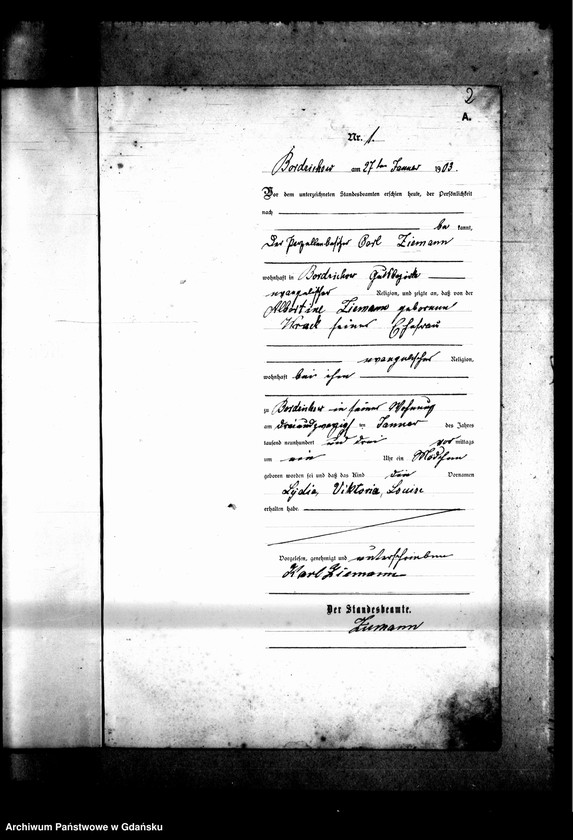 2
A.
Nr. 1.
Bordzichow am 27ten Januar 1903.
Vor dem unterzeichneten Standesbeamten erschien heute, der Persönlichkeit
nach
be kannt,
Der Parzellenbesitzer Carl Ziemann
wohnhaft in Bordzichow Gutsbezirk
evangelischer Religion, und zeigte an, daß von der
Albertine Ziemann geborenen
seiner Ehefrau
evangelischer Religion,
wohnhaft bei ihm
zu Bordzichow in seiner Wohnung
am dreiundzwanzigsten Januar des Jahres
tausend neunhundert und drei vor mittags
um ein Uhr ein Mädchen
geboren worden sei und daß das Kind die Vornamen
Lydia, Viktoria, Louise
erhalten habe.
Vorgelesen, genehmigt und unterschrieben
Karl Ziemann
Der Standesbeamte.
Ziemann
Archiwum Państwowe w Gdańsku